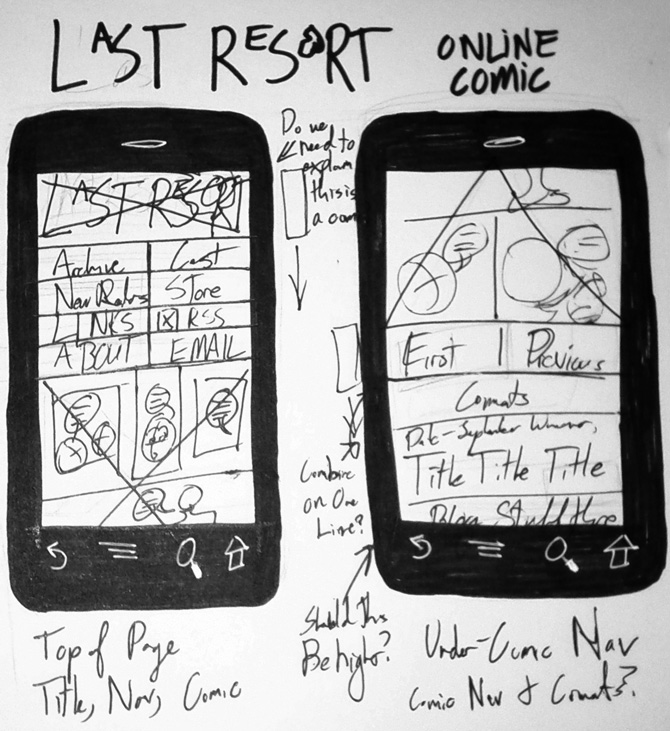 LAST RESORT
ONLINE
COMIC
Do we
need to
explain
this is
a com
LAST RESORT
Archive
Cast
New Readers
Store
LINKS
RSS
ABOUT
EMAIL
First | Previous
Comments
Date - September
Title Title Title
Blog Stuff
Combine
on One
Line?
Should This
Be higher?
Top of Page
Title, Nav, Comic
Under-Comic Nav
Comic Nav & Comments?